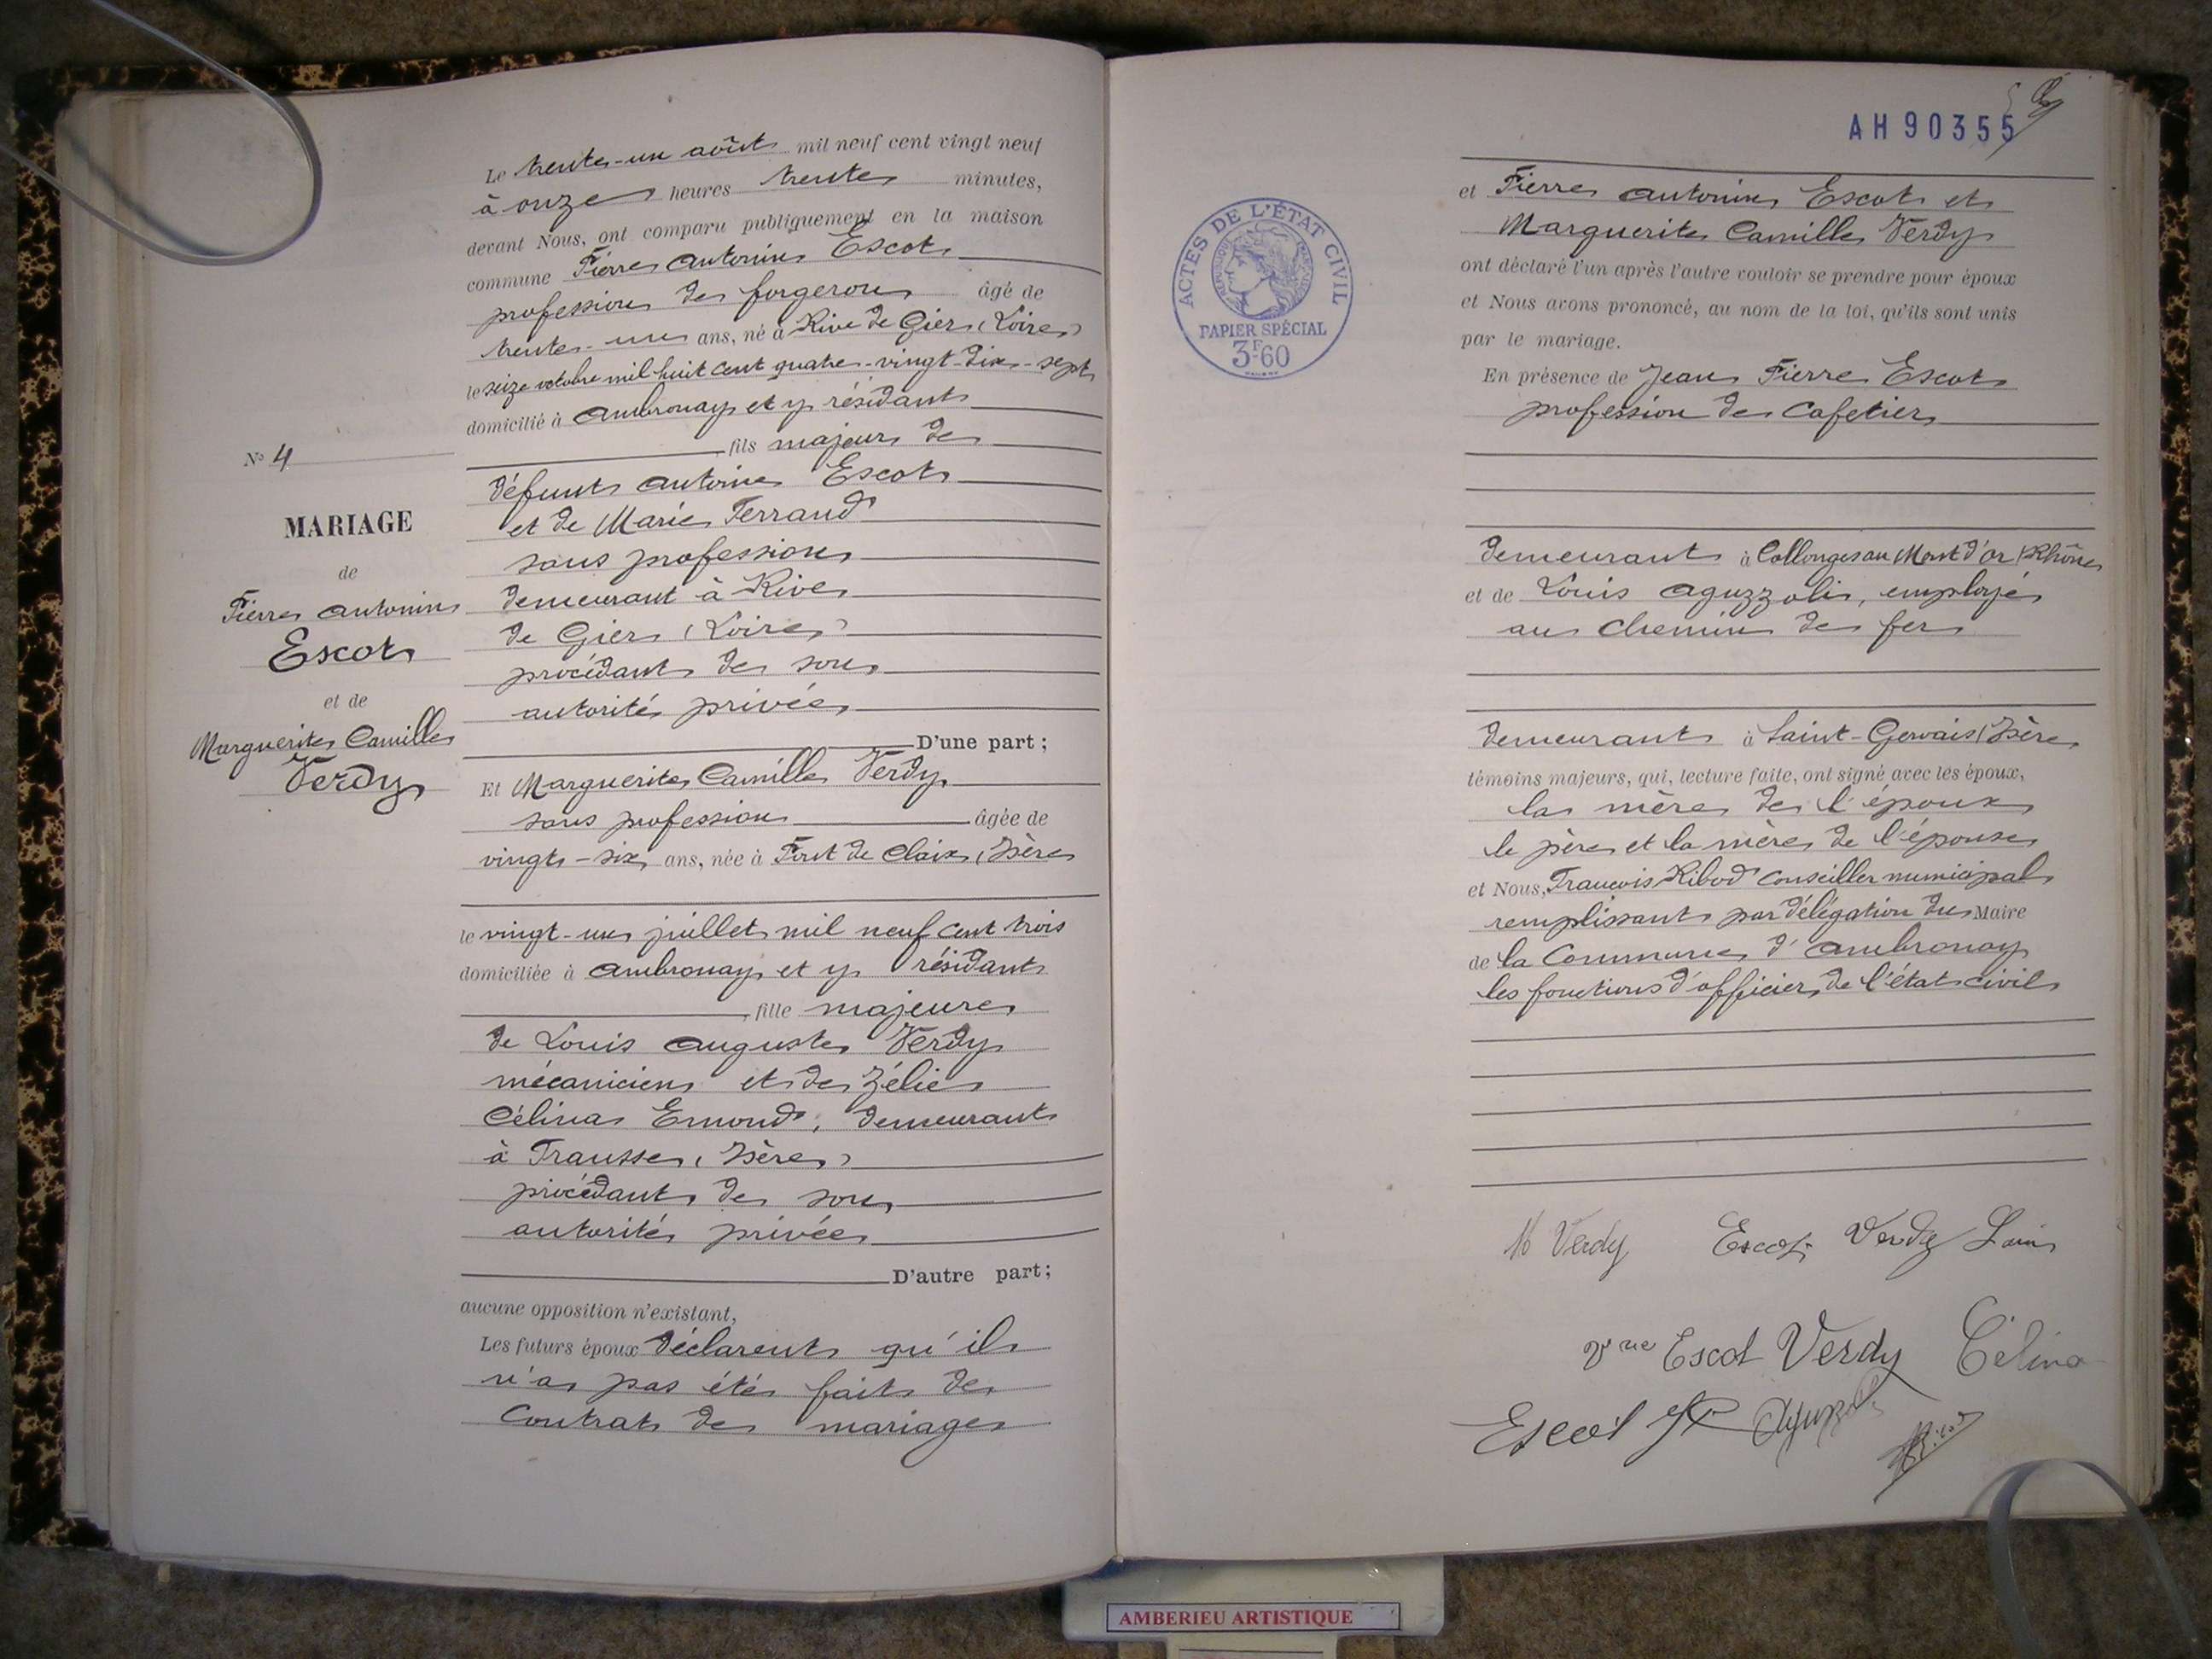 N° 4
MARIAGE
de
Pierre Antonin
Escot
et de
Marguerite Camille
Verdy
Le trente-un août mil neuf cent vingt neuf
à onze heures trente minutes,
devant Nous, ont comparu publiquement en la maison
commune Pierre Antonin Escot
profession de forgeron âgé de
trente-un ans, né à Rive de Gier (Loire)
le seize octobre mil huit cent quatre-vingt-dix-sept
domicilié à Ambronay et y résidant
fils majeur de
défunt Antoine Escot
et de Marie Ferrand
sans profession
demeurant à Rive
de Gier (Loire)
procédant de son
autorité privée
D'une part;
Et Marguerite Camille Verdy
sans profession âgée de
vingt-six ans, née à Pont de Claix (Isère
le vingt-un juillet mil neuf cent trois
domiciliée à Ambronay et y résidant
, fille majeure
de Louis Auguste Verdy
mécanicien et de Zélie
Célina Emond, demeurant
à (Isère)
procédant de son
autorité privée
D'autre part;
aucune opposition n'existant,
Les futurs époux déclarent qu'il
n'a pas été fait de
contrat de mariage
AH90355
ACTES DE L'ÉTAT CIVIL
RÉPUBLIQUE FRANÇAISE
PAPIER SPÉCIAL
3F.60
et Pierre Antonin Escot et
Marguerite Camille Verdy
ont déclaré l'un après l'autre vouloir se prendre pour époux
et Nous avons prononcé, au nom de la loi, qu'ils sont unis
par le mariage.
En présence de Jean Pierre Escot
profession de Cafetier
demeurant à Collonges au Mont d'Or (Rhône
et de Louis Aguzzoli, employé
au Chemin de fer
demeurant à Saint-Gervais (Isère
témoins majeurs, qui, lecture faite, ont signé avec les époux,
la mère de l'époux
le père et la mère de l'épouse
et Nous, François Ribod Conseiller municipal
remplissant par délégation du Maire
de la Commune d'Ambronay
les fonctions d'officier de l'état civil
M Verdy Escot Verdy Louis
Vve Escot Verdy Célina
Escot JP Aguzzoli
Ribod
AMBERIEU ARTISTIQUE